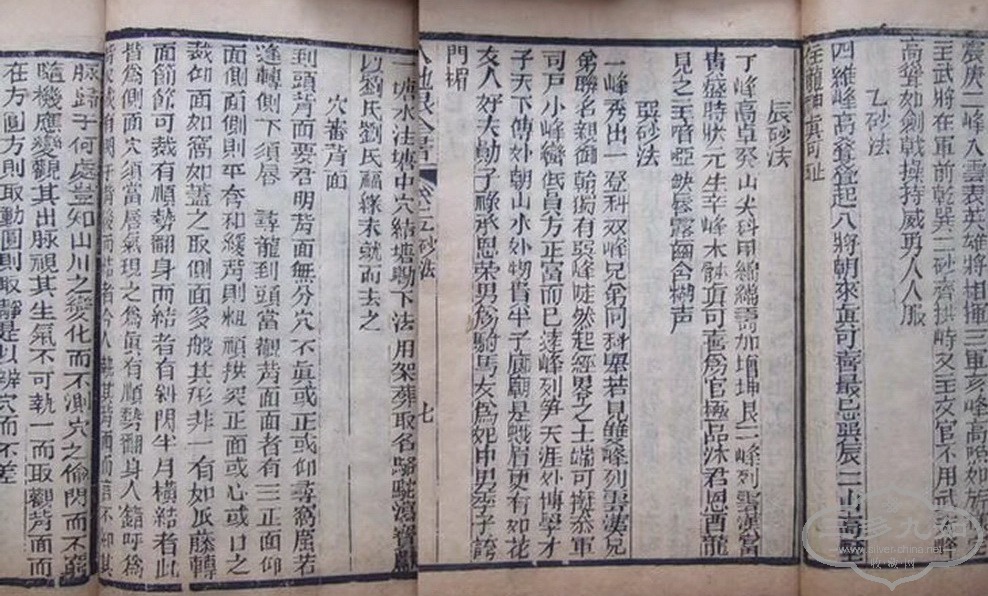 震庚二峰入雲表英雄將相揮三軍亥峰高
主武將在軍前乾巽二砂齊拱峙又主文官不用武
高聳如劍戟操持威勇人人服
乙砂法
四維峰高聳聳起八將朝來真可喜最忌巽辰二山高
辰砂法
丁峰高卓癸山尖科甲綿綿壽加增坤艮二峰列雲漢當
貴盛時狀元生辛峰木體真可喜為官極品沐君恩酉龍
見之主喑啞缺唇露齒含糊声
巽砂法
一峰秀出一登科双峰兄弟同科舉若見雙峰列雲漢兄
弟聯名親御翰獨有巽峰哇然起經界之土端可擬添軍
司戶小峰巒低員方正當而已遠峰列笋天涯外博學才
子天下傳妙朝山水外物貴半子廊廟是蛾眉更有如花
女人好大勳子祿承恩榮男為駙馬女為妃中男季子誇
門楣
卷二砂法
七
一塘水注塘中穴結塘墈下法用架葬取名駱駝瀉
以劉氏劉氏福緣未就而去之
穴審背面
到頭背面要君明背面無分穴不真或正或仰尋窩窟若
逢轉側下須唇 尋龍到頭當觀背面面者有三正面仰
面側面側則平夸和緩背則粗頑拱突正面或心或口之
裁仰面如窩如蓋之取側面多般其形非一有如瓜藤轉
面節節可裁有順勢翻身而結者有斜閃半月橫結者此
皆為側面穴須當唇氣現之為真有順勢翻身人錯呼為
脉歸于何處豈知山川之變化而不測穴之偷閃而不窮
隨機應變觀其出脉視其生氣不可執一而取觀背面而
在方圓方則取動圓則取靜是以辨穴而不差
www.silver-china.net